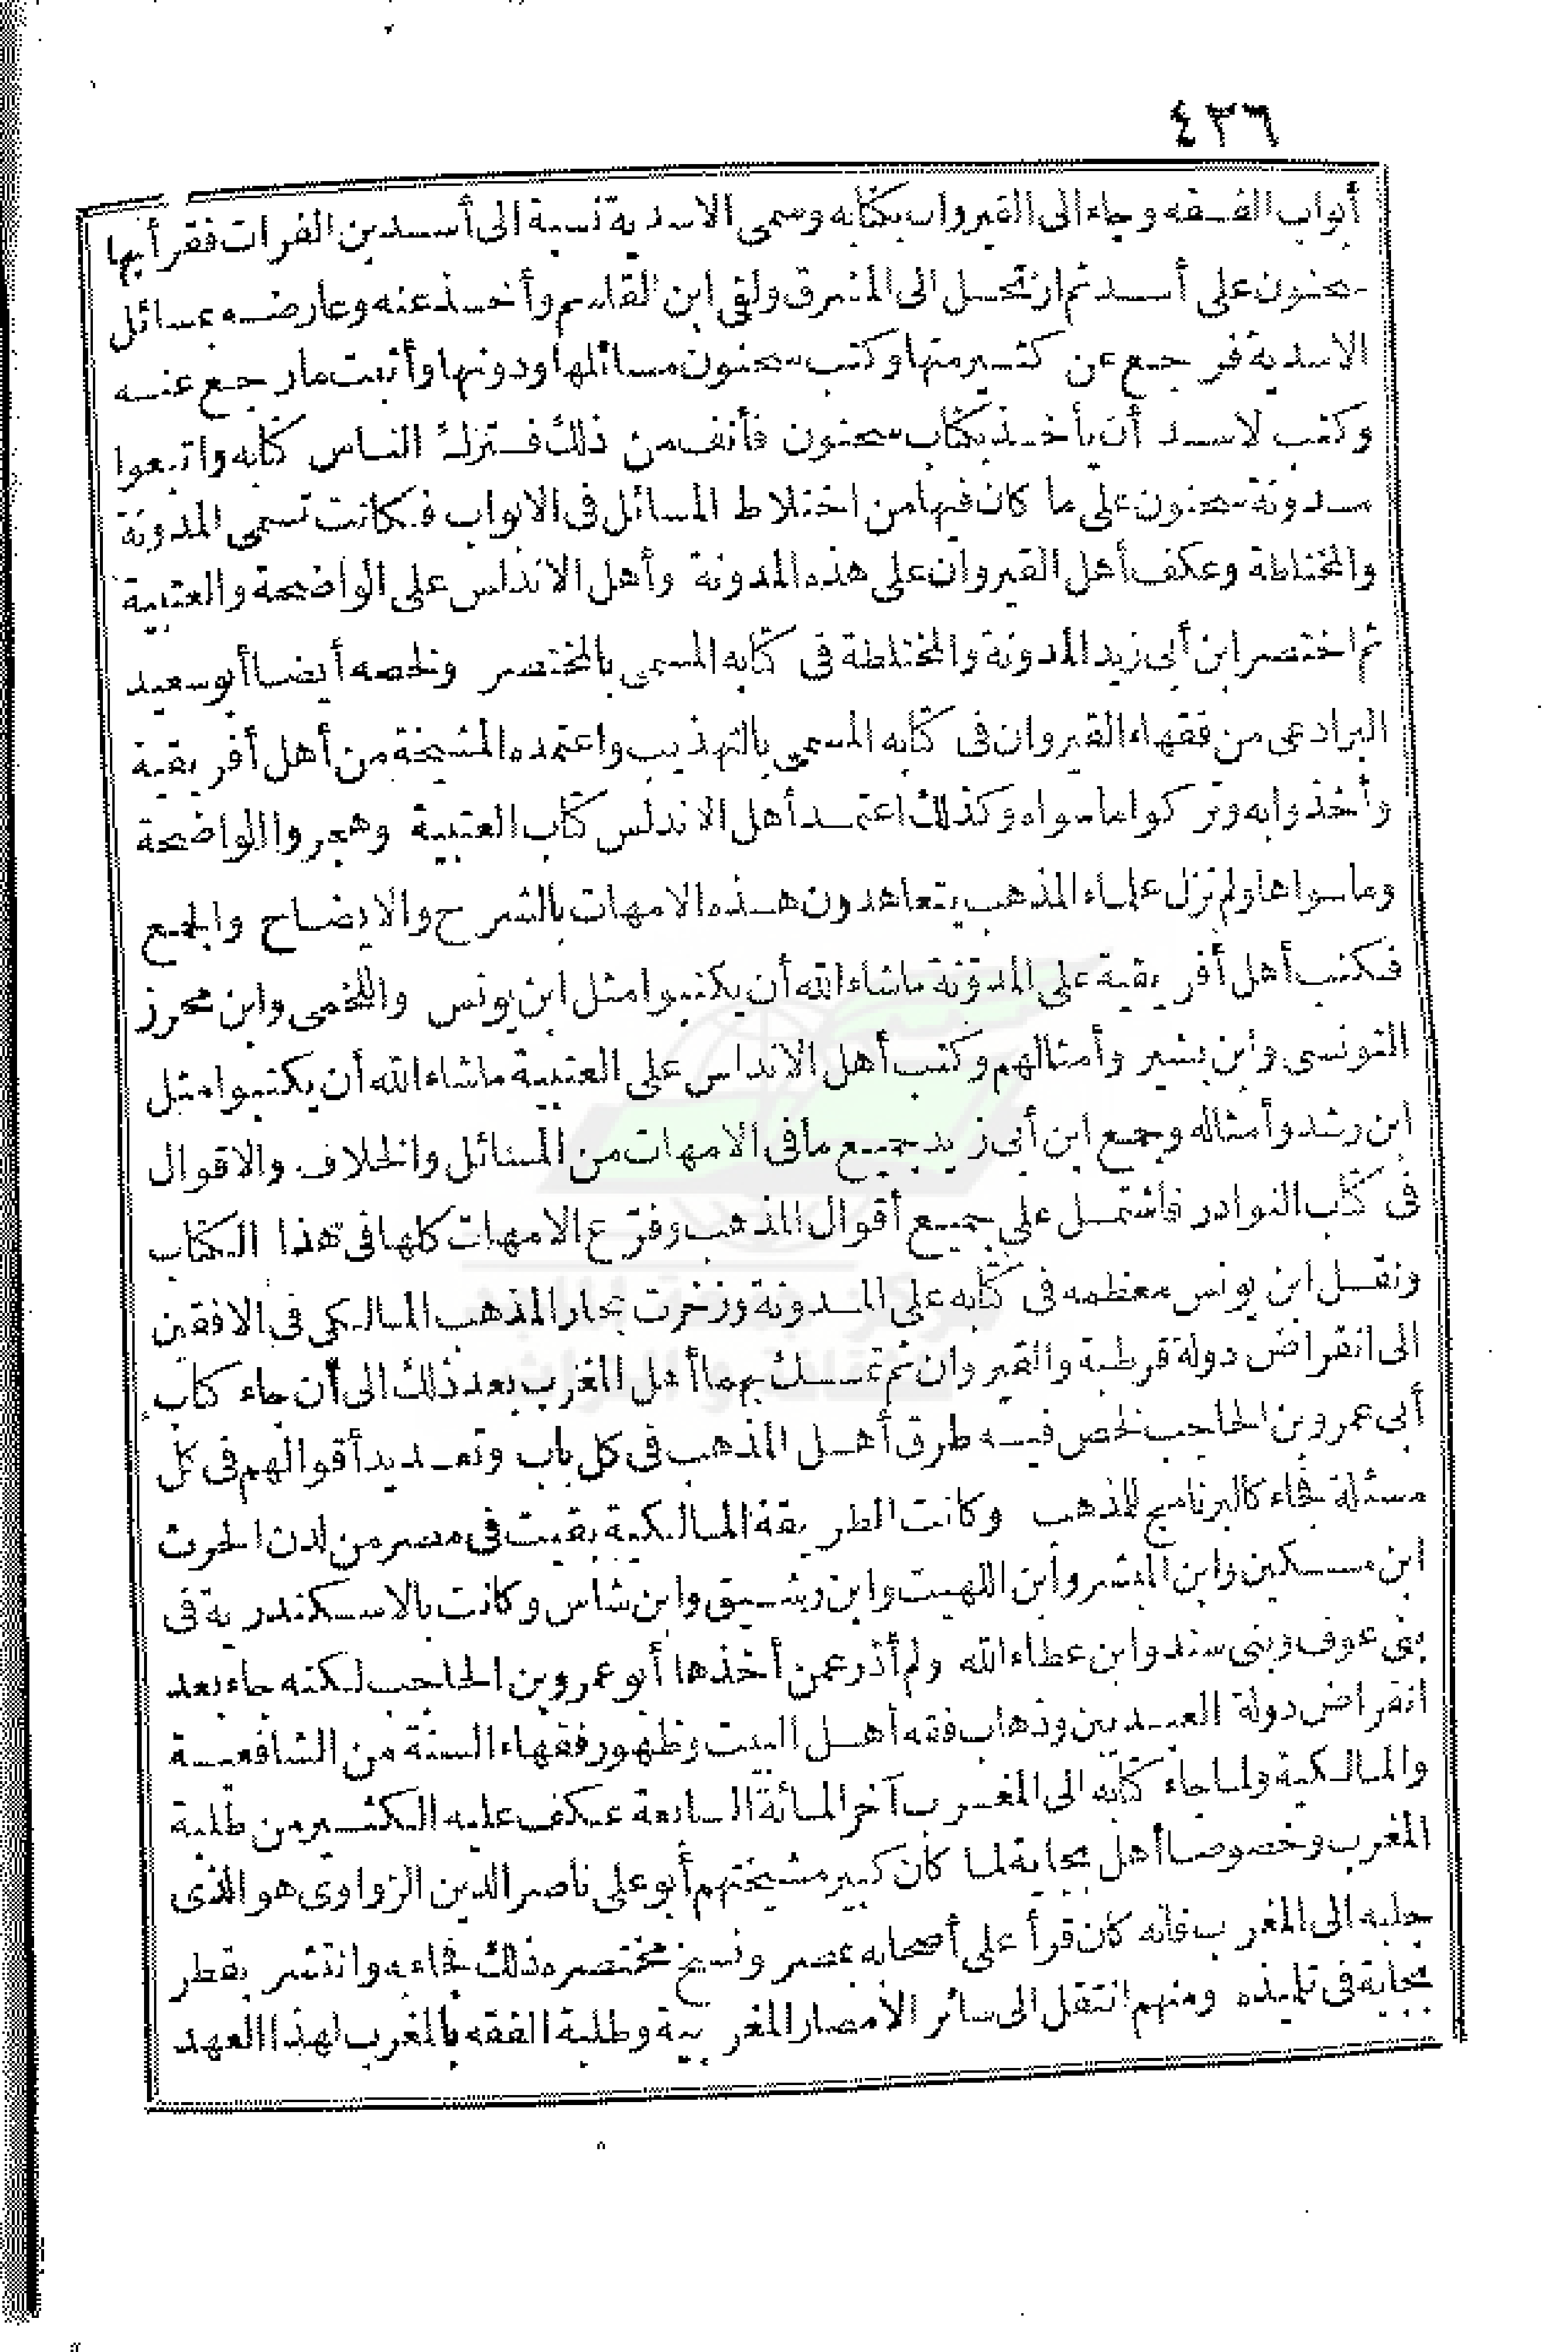 ٤٣٦
أبواب الفقه وجاء الى القيروان بكتابه وسمى الاسدية نسبة الى أسد بن الفرات فقرأ بها
سحنون على أسد ثم ارتحل الى المشرق ولقى ابن القاسم وأخذ عنه وعارضه بمسائل
الاسدية فرجع عن كثير منها وكتب سحنون مسائلها ودونها وأثبت مارجع عنه
وكتب لاسد أن يأخذ بكتاب سحنون فأنف من ذلك فترك الناس كتابه واتبعوا
مدونة سحنون على ما كان فيها من اختلاط المسائل فى الابواب فكانت تسمى المدونة
والمختلطة وعكف أهل القيروان على هذه المدونة وأهل الاندلس على الواضحة والعتبية
ثم اختصر ابن أبى زيد المدونة والمختلطة فى كتابه المسمى بالمختصر ولخصه أيضا أبو سعيد
البرادعى من فقهاء القيروان فى كتابه المسمى بالتهذيب واعتمده المشيخة من أهل أفريقية
وأخذوا به وتركوا ما سواه وكذلك اعتمد أهل الاندلس كتاب العتبية وهجروا الواضحة
وما سواها ولم تزل علماء المذهب يتعاهدون هذه الامهات بالشرح والايضاح والجمع
فكتب أهل أفريقية على المدونة ما شاء الله أن يكتبوا مثل ابن يونس واللخمى وابن محرز
التونسى وابن بشير وأمثالهم وكتب أهل الاندلس على العتبية ما شاء الله أن يكتبوا مثل
ابن رشد وأمثاله وجمع ابن أبى زيد جميع ما فى الامهات من المسائل والخلاف والاقوال
فى كتاب النوادر فاشتمل على جميع أقوال المذهب وفرّع الامهات كلها فى هذا الكتاب
ونقل ابن يونس معظمه فى كتابه على المدونة وزخرت بحار المذهب المالكى فى الافقين
الى انقراض دولة قرطبة والقيروان ثم تمسك بهما أهل المغرب بعد ذلك الى أن جاء كتاب
أبى عمرو بن الحاجب لخص فيه طرق أهل المذهب فى كل باب وتعديد أقوالهم فى كل
مسئلة فجاء كالبرنامج للمذهب وكانت الطريقة المالكية بقيت فى مصر من لدن الحرث
ابن مسكين وابن المبشر وابن اللهيت وابن رشيق وابن شأس وكانت بالاسكندرية فى
بنى عوف وبنى سند وابن عطاء الله ولم أدر عمن أخذها أبو عمرو بن الحاجب لكنه جاء بعد
انقراض دولة العبيديين وذهاب فقه أهل البيت وظهور فقهاء السنة من الشافعية
والمالكية ولما جاء كتابه الى المغرب آخر المائة السابعة عكف عليه الكثير من طلبة
المغرب وخصوصا أهل بجاية لما كان كبير مشيختهم أبو على ناصر الدين الزواوى هو الذى
جلبه الى المغرب فانه كان قرأ على أصحابه بمصر ونسخ مختصره ذلك فجاء به وانتشر بقطر
بجاية فى تلميذه ومنهم انتقل الى سائر الأمصار المغربية وطلبة الفقه بالمغرب لهذا العهد